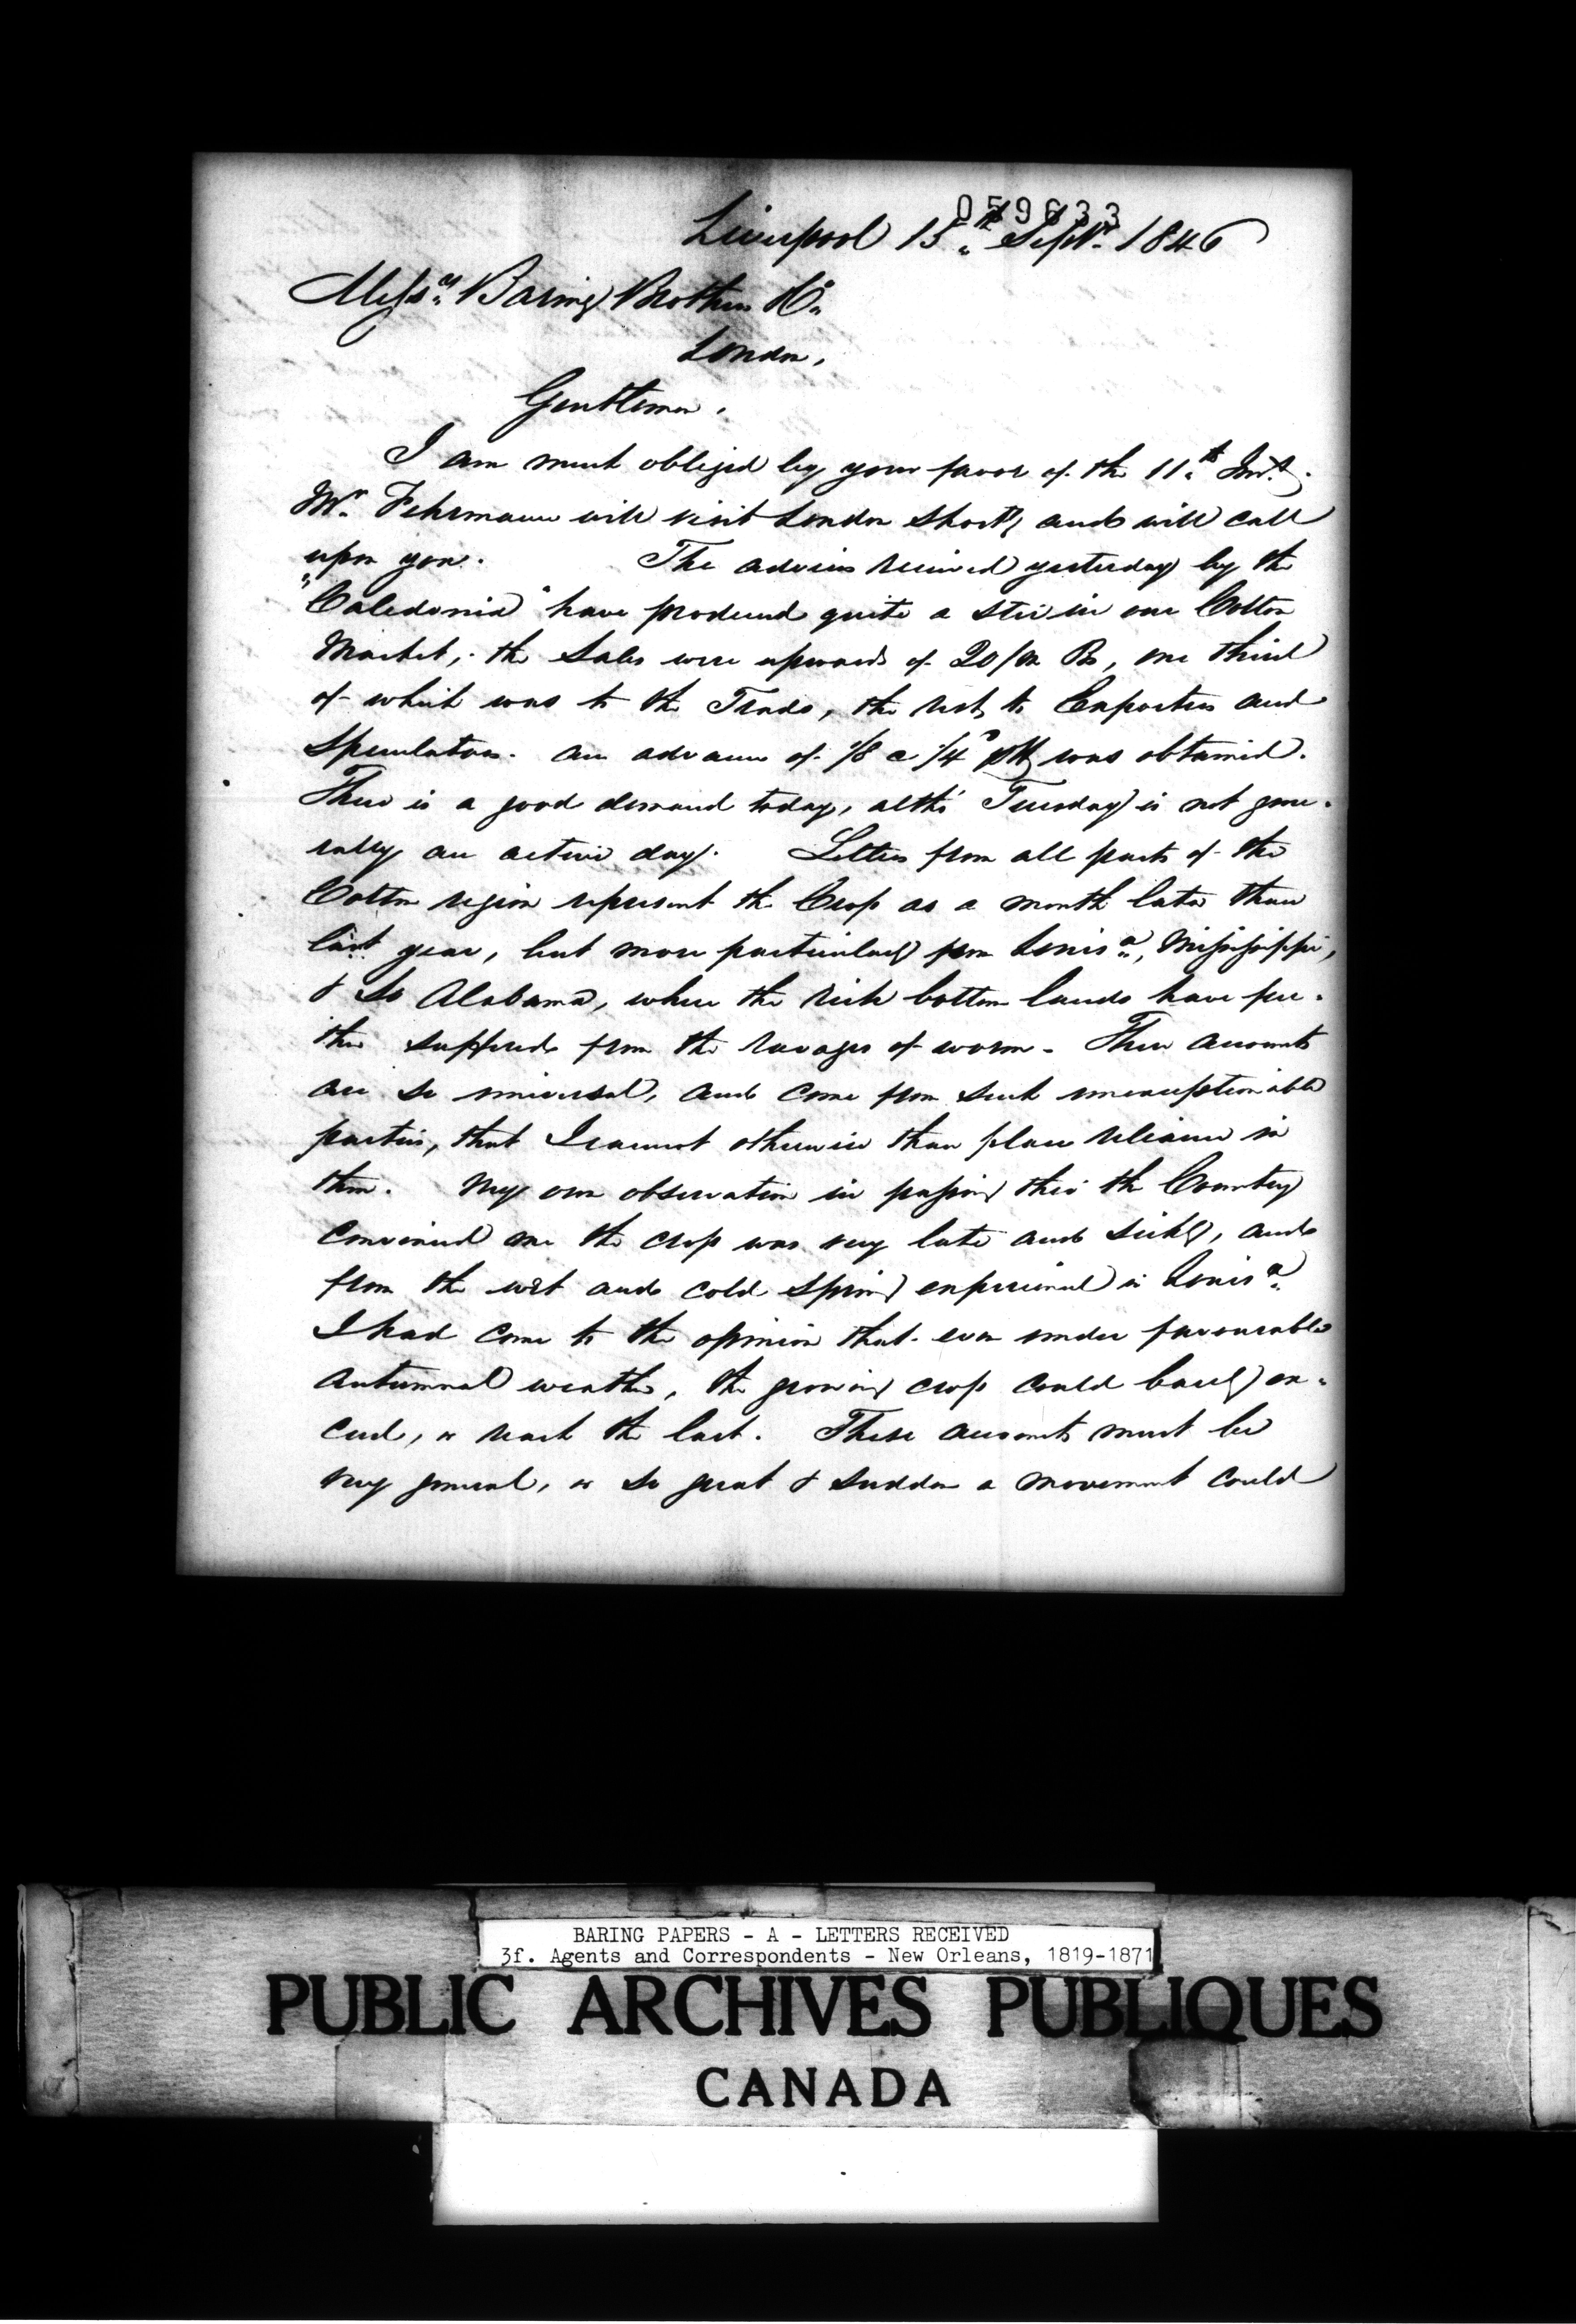 059633
Liverpool 15th Septr. 1846
Messrs. Baring Brothers & Co.
London,
Gentlemen,
I am much obliged by your favor of the 11th Inst.
Mr. Fehrmann will visit London shortly and will call
upon you. The advices received yesterday by the
"Caledonia" have produced quite a stir in our Cotton
Market; the Sales were upwards of 20/m Bs, one third
of which was to the Trade, the rest to Exporters and
Speculators. An advance of 1/8 a 1/4d was obtained.
There is a good demand today, altho' Tuesday is not gene-
rally an active day. Letters from all parts of the
Cotton region represent the Crop as a month later than
last year, but more particularly from Louisa., Mississippi,
& So Alabama, where the rich bottom lands have fur-
ther suffered from the ravages of worm. These accounts
are so universal, and come from such unexceptionable
parties, that I cannot otherwise than place reliance in
them. My own observation in passing thro' the Country
convinced me the crop was very late and sickly, and
from the wet and cold spring experienced in Louisa.
I had come to the opinion that even under favourable
autumnal weather, the growing crop could barely ex-
ceed, or reach the last. These accounts must be
very general, or so great & sudden a movement could
BARING PAPERS - A - LETTERS RECEIVED
3f. Agents and Correspondents - New Orleans, 1819-1871
PUBLIC ARCHIVES PUBLIQUES
CANADA